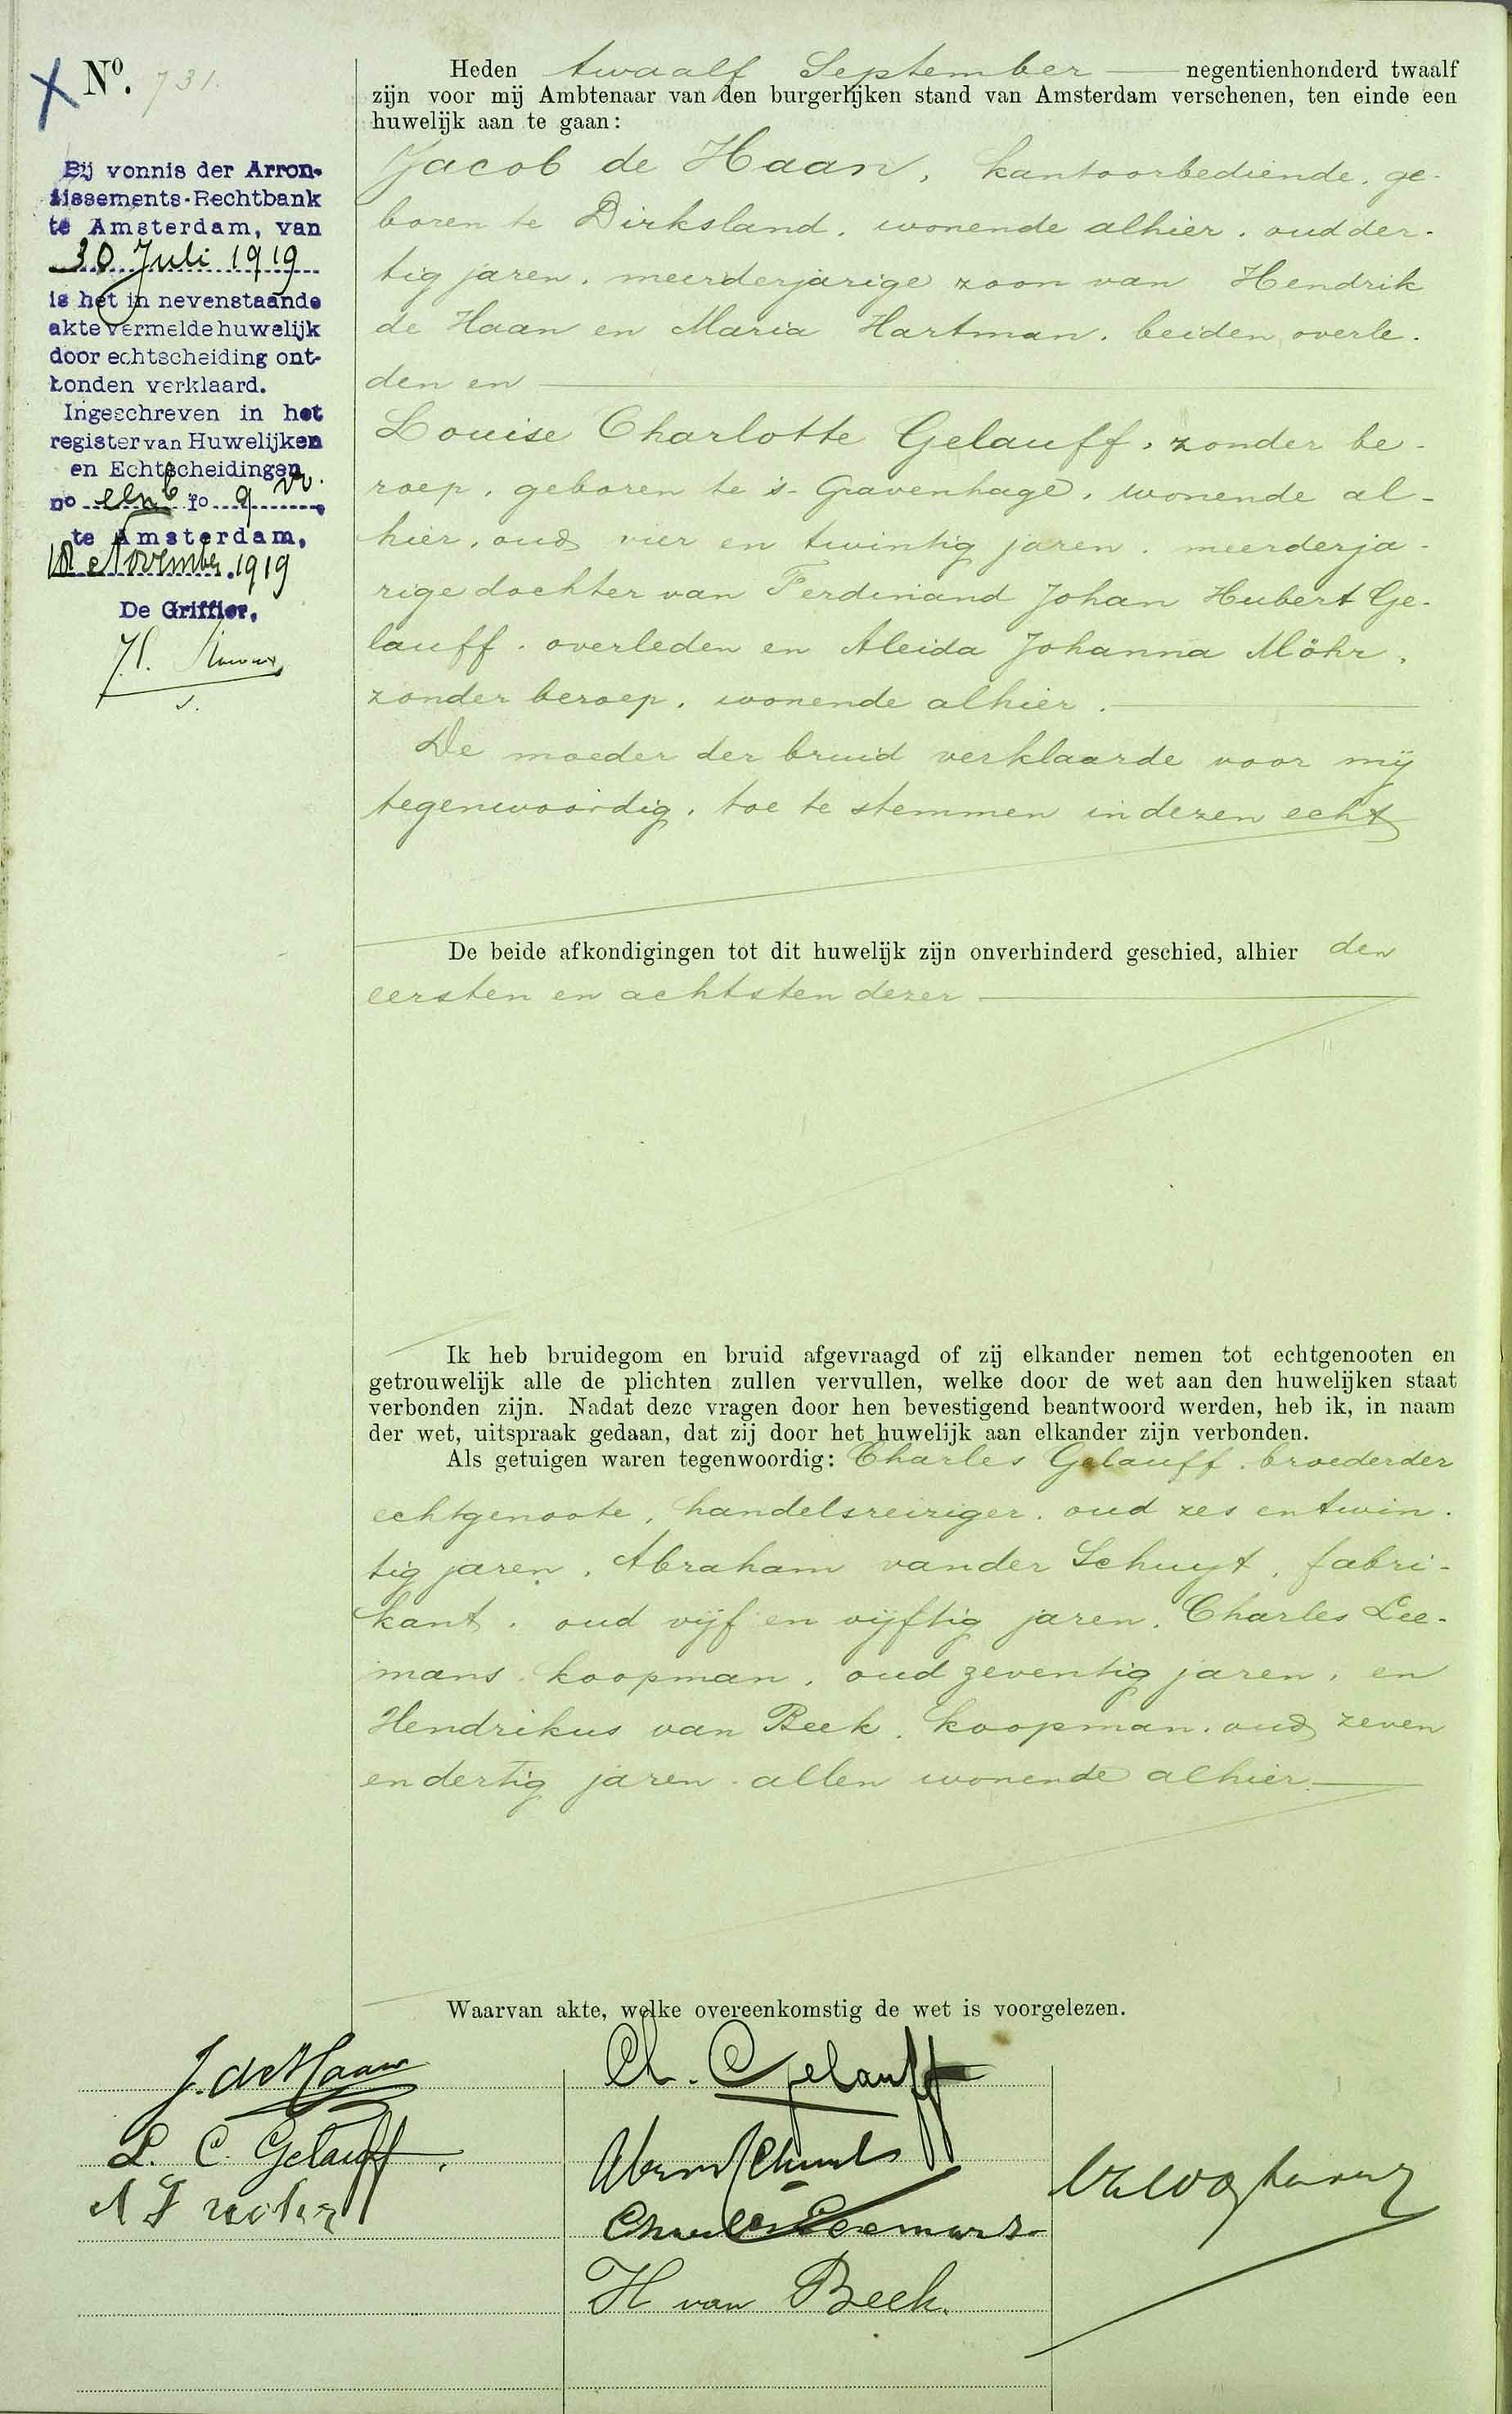 Nº. 731.
Bij vonnis der Arron-
dissements-Rechtbank
te Amsterdam, van
30 Juli 1919
is het in nevenstaande
akte vermelde huwelijk
door echtscheiding ont-
bonden verklaard.
Ingeschreven in het
register van Huwelijken
en Echtscheidingen
no elf fo 9 vo.,
te Amsterdam,
18 November 1919
De Griffier,
Heden twaalf September negentienhonderd twaalf
zijn voor mij Ambtenaar van den burgerlijken stand van Amsterdam verschenen, ten einde een
huwelijk aan te gaan:
Jacob de Haan, kantoorbediende, ge-
boren te Dirksland, wonende alhier, oud der-
tig jaren, meerderjarige zoon van Hendrik
de Haan en Maria Hartman, beiden overle-
den en
Louise Charlotte Gelauff, zonder be-
roep, geboren te 's-Gravenhage, wonende al-
hier, oud vier en twintig jaren, meerderja-
rige dochter van Ferdinand Johan Hubert Ge-
lauff, overleden en Aleida Johanna Möhr,
zonder beroep, wonende alhier.
De moeder der bruid verklaarde voor mij
tegenwoordig, toe te stemmen in dezen echt
De beide afkondigingen tot dit huwelijk zijn onverhinderd geschied, alhier den
eersten en achtsten dezer
Ik heb bruidegom en bruid afgevraagd of zij elkander nemen tot echtgenooten en
getrouwelijk alle de plichten zullen vervullen, welke door de wet aan den huwelijken staat
verbonden zijn. Nadat deze vragen door hen bevestigend beantwoord werden, heb ik, in naam
der wet, uitspraak gedaan, dat zij door het huwelijk aan elkander zijn verbonden.
Als getuigen waren tegenwoordig: Charles Gelauff, broeder der
echtgenoote, handelsreiziger, oud zes en twin-
tig jaren, Abraham van der Schuyt, fabri-
kant, oud vijf en vijftig jaren, Charles Lee-
mans, koopman, oud zeventig jaren, en
Hendrikus van Beek, koopman, oud zeven
en dertig jaren, allen wonende alhier
Waarvan akte, welke overeenkomstig de wet is voorgelezen.
J. de Haan
L. C. Gelauff.
Ch. Gelauff
Charles Leemans
H van Beek.